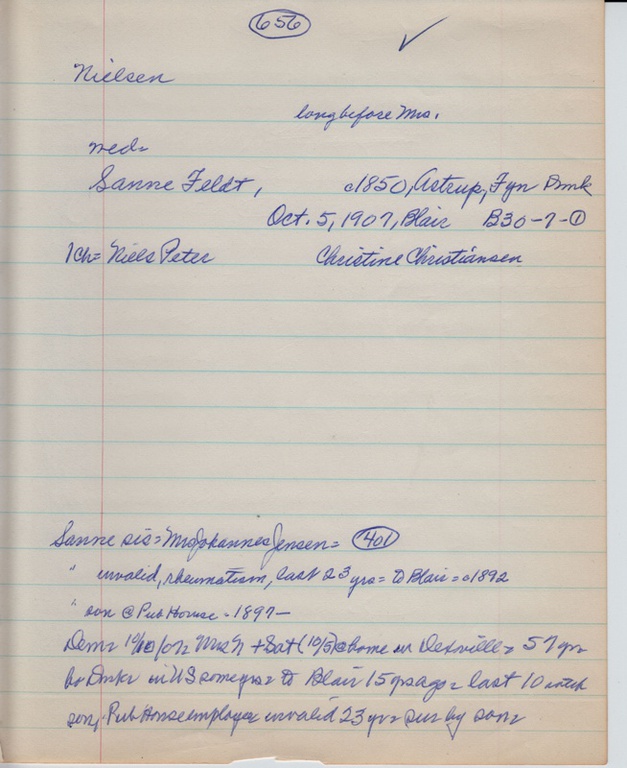 656 ✓
Nielsen
long before Mrs.
med=
Sanne Feldt, c1850, Astrup, Fyn Dmk
Oct. 5, 1907, Blair B30-7-①
1 ch= Niels Peter Christine Christiansen
Sanne sis= Mrs Johannes Jensen= 401
" invalid, rheumatism, last 23 yrs= to Blair= c1892
" son @ Pub House - 1897-
Dem= 10/10/07= Mrs N +Sat (10/5) @ home in Dexville= 57 yrs
b= Dmk= in US some yrs= to Blair 15 yrs ago= last 10 with
son, Pub House employee invalid 23 yrs= sur by son=